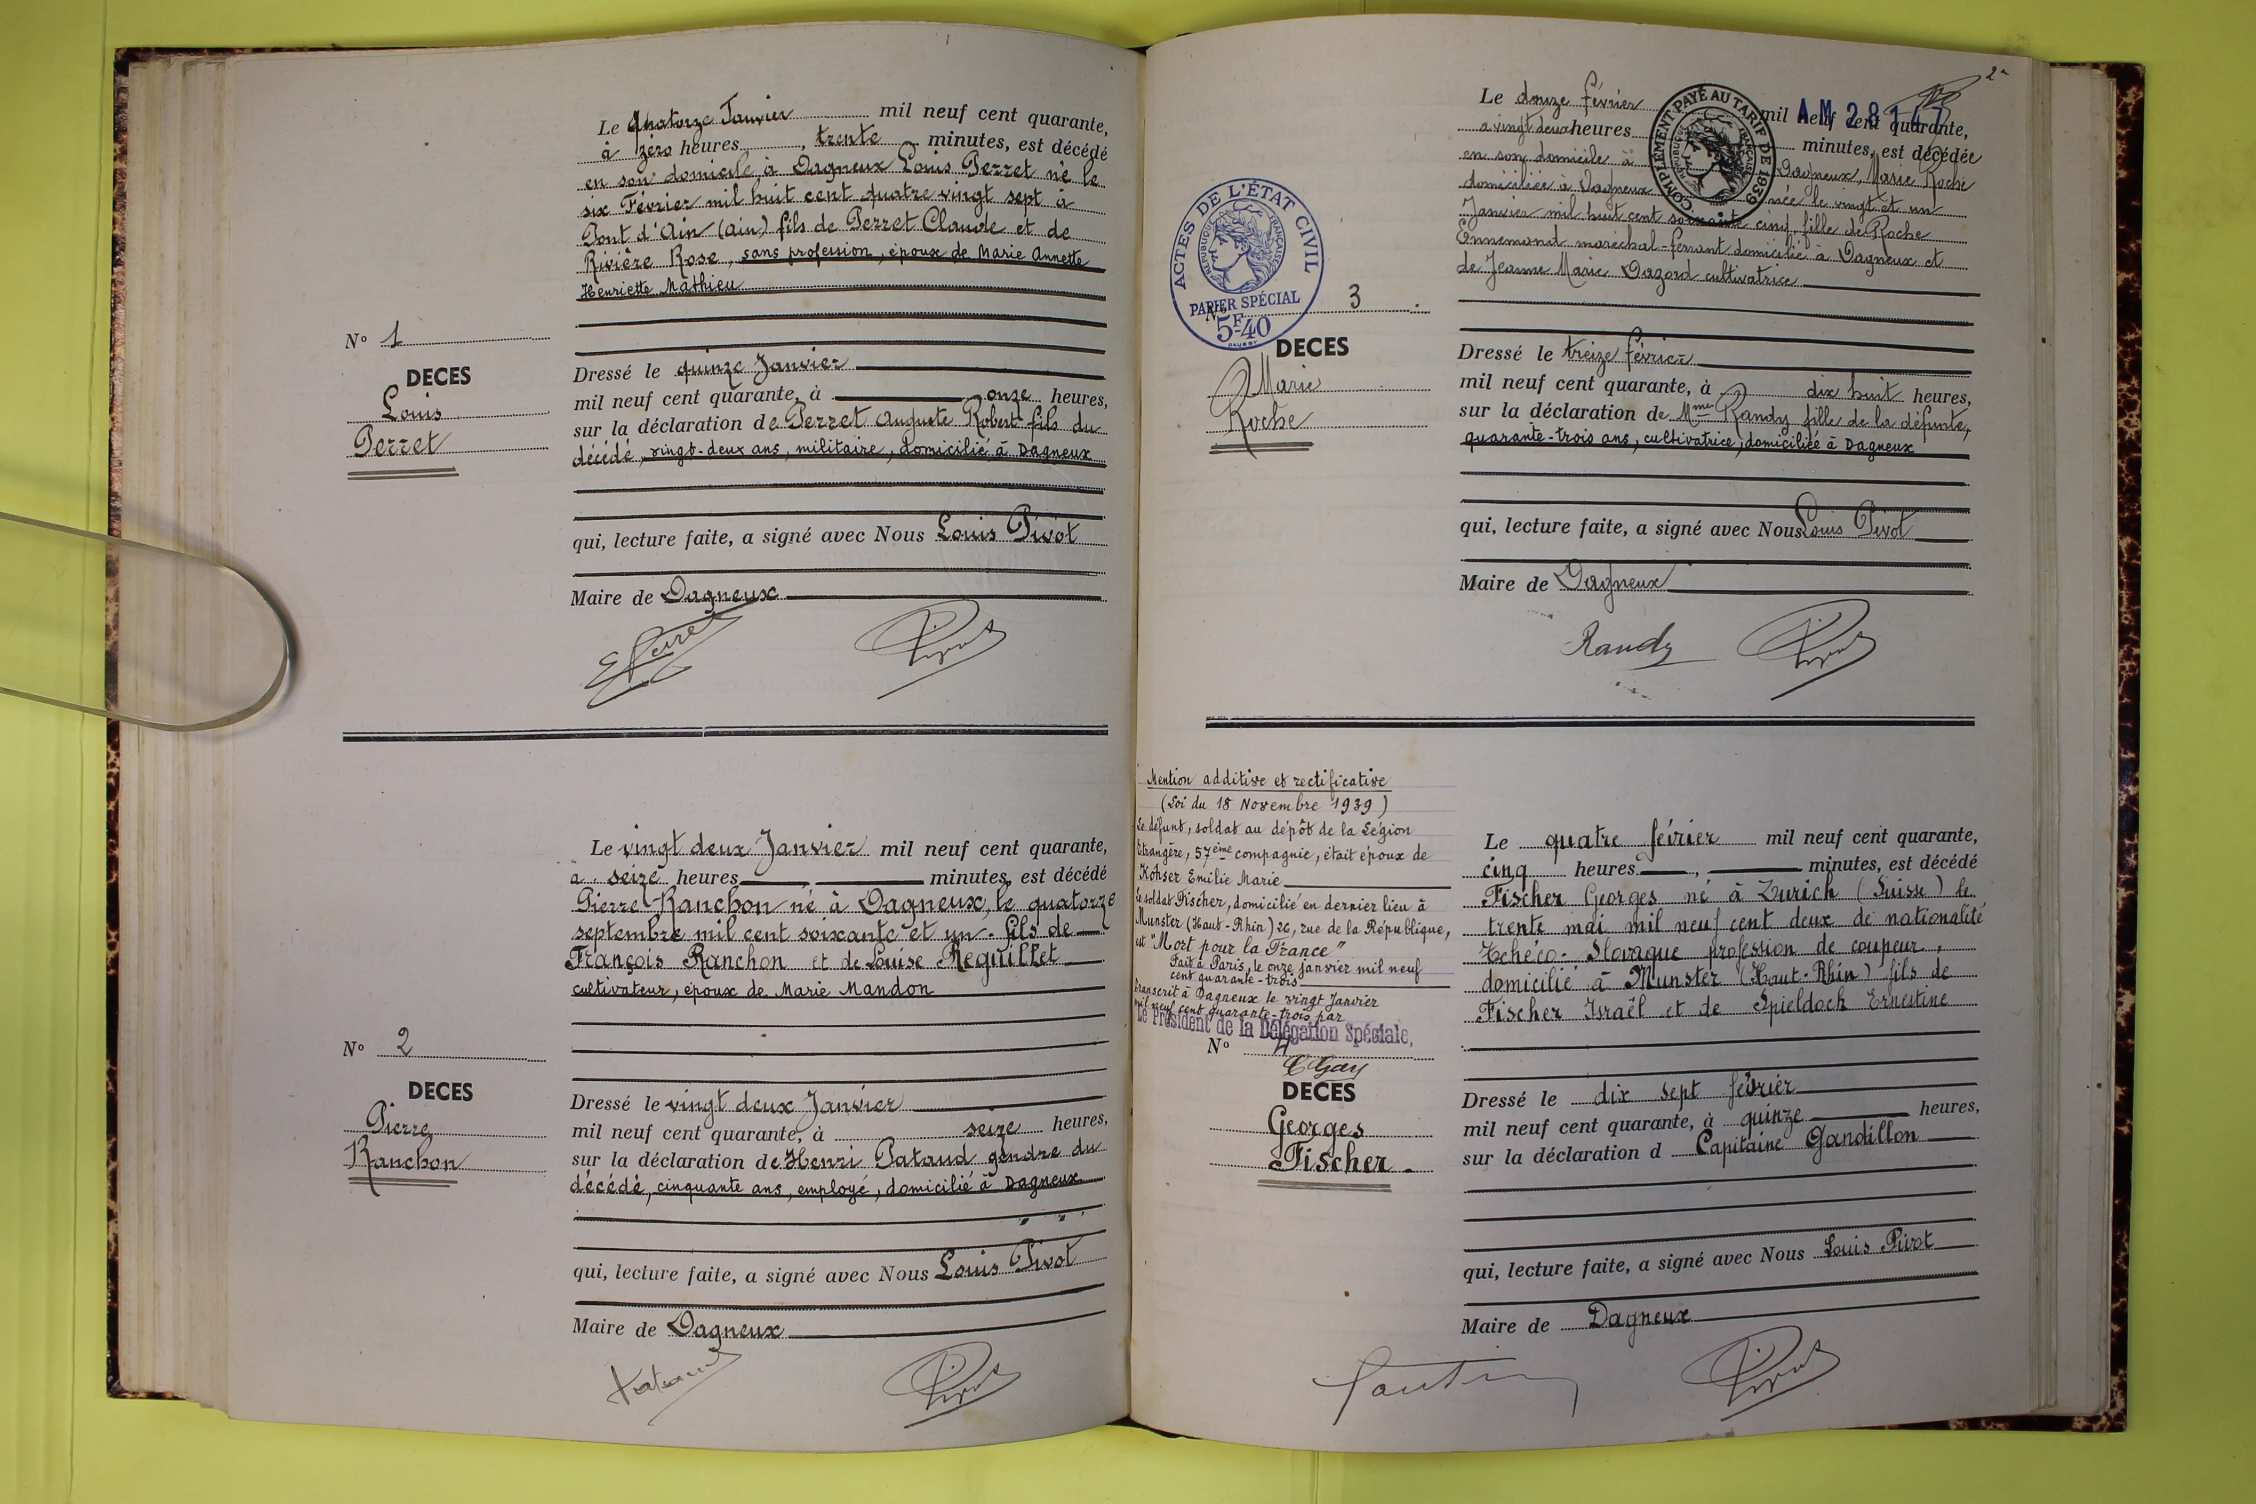 Le quatorze Janvier mil neuf cent quarante,
à zéro heures, trente minutes, est décédé
en son domicile, à Dagneux Louis Perret né le
six Février mil huit cent quatre vingt sept à
Pont d'Ain (Ain) fils de Perret Claude et de
Rivière Rose, sans profession, époux de Marie Annette
Henriette Mathieu
N° 1
DECES
Louis
Perret
Dressé le quinze Janvier
mil neuf cent quarante, à onze heures,
sur la déclaration de Perret Auguste Robert fils du
décédé, vingt-deux ans, militaire, domicilié à Dagneux
qui, lecture faite, a signé avec Nous Louis Pivot
Maire de Dagneux
Pivot
Le vingt deux Janvier mil neuf cent quarante,
à seize heures, minutes, est décédé
Pierre Ranchon né à Dagneux, le quatorze
septembre mil cent soixante et un. fils de
François Ranchon et de Louise Reguillet
cultivateur, époux de Marie Mandon
N° 2
DECES
Pierre
Ranchon
Dressé le vingt deux Janvier
mil neuf cent quarante, à seize heures,
sur la déclaration de Henri Pataud gendre du
décédé, cinquante ans, employé, domicilié à Dagneux
qui, lecture faite, a signé avec Nous Louis Pivot
Maire de Dagneux
Pataud Pivot
2
Le douze février mil neuf cent quarante,
AM 28147
COMPLÉMENT PAYÉ AU TARIF DE 1939
RÉPUBLIQUE FRANÇAISE
à vingt deux heures minutes, est décédée
en son domicile à Dagneux, Marie Roche
domiciliée à Dagneux née le vingt et un
Janvier mil huit cent soixante cinq, fille de Roche
Ennemond maréchal-ferrant domicilié à Dagneux et
de Jeanne Marie Dazord cultivatrice
ACTES DE L'ÉTAT CIVIL
RÉPUBLIQUE FRANÇAISE
PAPIER SPÉCIAL
5F40
N° 3
DECES
Marie
Roche
Dressé le treize février
mil neuf cent quarante, à dix huit heures,
sur la déclaration de Mme Randy fille de la défunte,
quarante-trois ans, cultivatrice, domiciliée à Dagneux
qui, lecture faite, a signé avec Nous Louis Pivot
Maire de Dagneux
Randy Pivot
Mention additive et rectificative
(Loi du 18 Novembre 1939)
Le défunt, soldat au dépôt de la Légion
Etrangère, 57ème compagnie, était époux de
Kohser Emilie Marie
Le soldat Fischer, domicilié en dernier lieu à
Munster (Haut-Rhin) 2c, rue de la République,
est "Mort pour la France"
Fait à Paris, le onze janvier mil neuf
cent quarante-trois
Transcrit à Dagneux le vingt Janvier
mil neuf cent quarante-trois par
Le Président de la Délégation Spéciale,
N° 4
Gay
DECES
Georges
Fischer
Le quatre février mil neuf cent quarante,
cinq heures, minutes, est décédé
Fischer Georges né à Zurich (Suisse) le
trente mai mil neuf cent deux de nationalité
Tchéco-Slovaque profession de coupeur,
domicilié à Munster (Haut-Rhin) fils de
Fischer Israël et de Spieldoch Ernestine
Dressé le dix sept février
mil neuf cent quarante, à quinze heures,
sur la déclaration d Capitaine Gandillon
qui, lecture faite, a signé avec Nous Louis Pivot
Maire de Dagneux
Pivot